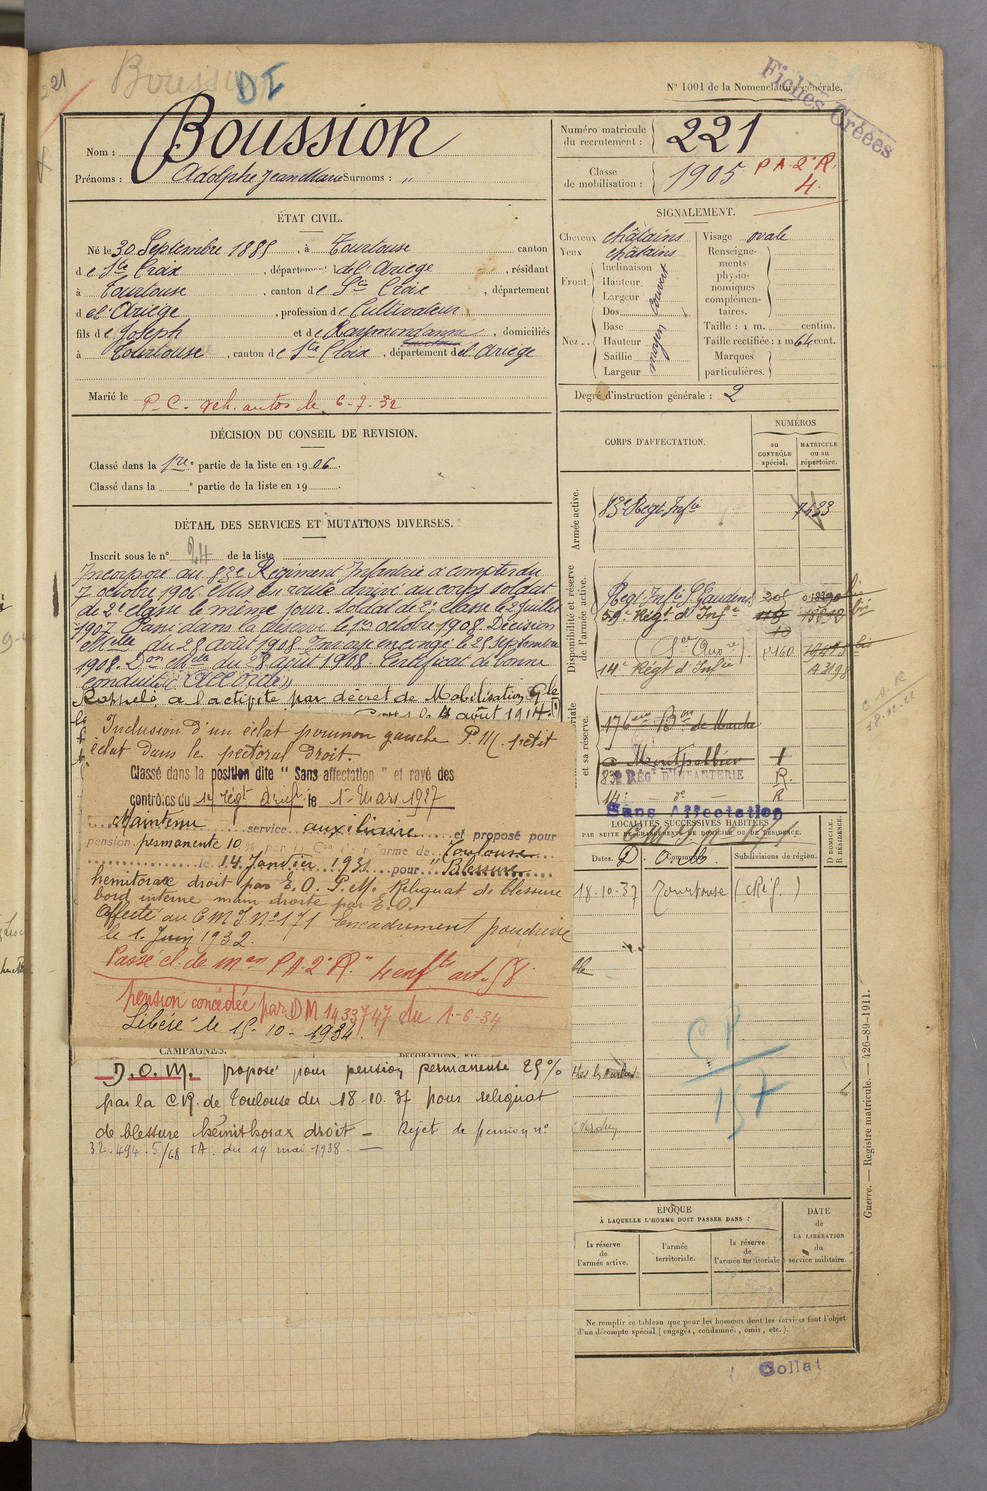 21
Boussion
DI
N° 1001 de la Nomenclature générale.
Fiches Créées
Nom : Boussion
Prénoms : Adolphe Jean Marie Surnoms : "
Numéro matricule du recrutement : 221
Classe de mobilisation : 1905
P A 2e R. 4.
ÉTAT CIVIL.
Né le 30 Septembre 1885, à Tourtouse canton
de Ste Croix, département de l'Ariège, résidant
à Tourtouse, canton de Ste Croix, département
de l'Ariège, profession de Cultivateur
fils de Joseph et de Raymond anne, domiciliés
à Tourtouse, canton de Ste Croix, département de l'Ariège
Marié le
P.C. veh. autos le 6-7-32
SIGNALEMENT.
Cheveux châtains
Yeux châtains
Front. Inclinaison
Hauteur
Largeur
Nez.. Dos
Base
Hauteur
Saillie
Largeur
couvert
moyen
Visage ovale
Renseignements physionomiques complémentaires.
Taille : 1 m. centim.
Taille rectifiée : 1 m 64 cent.
Marques particulières.
Degré d'instruction générale : 2
DÉCISION DU CONSEIL DE REVISION.
Classé dans la 1re partie de la liste en 1906.
Classé dans la ° partie de la liste en 19
DÉTAIL DES SERVICES ET MUTATIONS DIVERSES.
Inscrit sous le n° 24 de la liste
Incorporé au 83e Régiment Infanterie à compter du
7 octobre 1906 & mis en route arrivé au corps soldat
de 2e classe le même jour. Soldat de 1e classe le 2 juillet
1907. Passé dans la réserve le 1er octobre 1908. Décision
Mlle du 28 août 1908
1908. Don Mlle du 28 août 1908. Certificat de bonne
conduite "Accordé"
Rappelé à l'activité par décret de Mobilisation Gle
le 4 août 1914.
Inclusion d'un éclat poumon gauche P.M. petit
éclat dans le pectoral droit.
Classé dans la position dite "Sans affectation" et rayé des
contrôles du 14 régt d'Inf. le 1er Mars 1927
Maintenu service auxiliaire et proposé pour
pension permanente 10 % par la Con de réforme de Toulouse
le 14 Janvier 1931 pour "Blessure
hemitorax droit par E.O. P.M. Reliquat de blessure
bord interne main droite par E.O.
Affecté au C M I N° 171 Encadrement poudrerie
le 1er Juin 1932.
Passé cl. de mon P.A.2e R. "4 enfts art. 58
pension concédée par DM 1433747 du 1-6-34
Libéré le 15-10-1934.
CAMPAGNES.
DÉCORATIONS, ETC.
D.O.M. proposé pour pension permanente 25%
par la CR. de Toulouse du 18-10.37 pour reliquat
de blessure hemithorax droit — Rejet de pension n°
32.494.5/68 SA. du 19 mai 1938. —
CORPS D'AFFECTATION.
NUMÉROS
au CONTRÔLE spécial.
MATRICULE ou au répertoire.
Armée active.
83e Regt Infie
7433
Disponibilité et réserve de l'armée active.
Régt. Infie St Gaudens
59e Régt d'Infie
14e Régt d'Infie
1160
et sa réserve.
176eme Bon de Marche
à Montpellier
83e RÉGT D'INFANTERIE
R.
14e — d° —
R
Sans Affectation
C.A.R
18-12-22
LOCALITÉS SUCCESSIVES HABITÉES
PAR SUITE DE CHANGEMENTS DE DOMICILE OU DE RÉSIDENCE.
Dates.
Communes.
Subdivisions de région.
D DOMICILE.
R RÉSIDENCE.
18-10-37 Tourtouse (Rég. )
CP
157
ÉPOQUE
À LAQUELLE L'HOMME DOIT PASSER DANS :
la réserve de l'armée active.
l'armée territoriale.
la réserve de l'armée territoriale.
DATE de LA LIBÉRATION du service militaire.
Ne remplir ce tableau que pour les hommes dont les services font l'objet
d'un décompte spécial (engagés, condamnés, omis, etc.).
Guerre. — Registre matricule. — 426-89-1911.
Collat